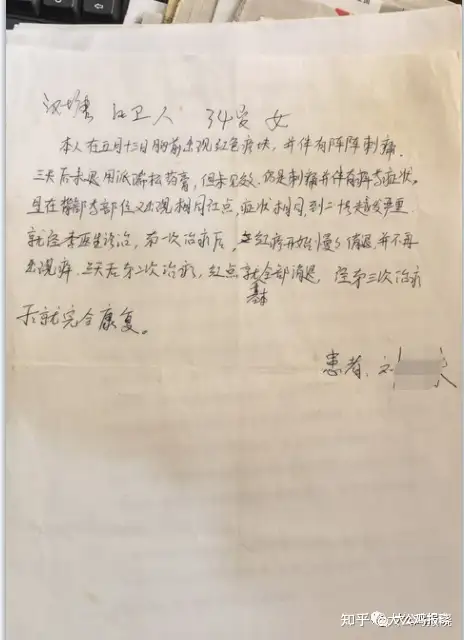 江卫人 34岁 女
本人在五月十三日胸前出现红色疹块，并伴有阵阵刺痛.
三天后未果用派瑞松药膏，但未见效.仍是刺痛并伴有痒症状，
且在臀部等部位又出现相同红点，症状相同，到二十天愈发严重
就经李医生诊治，第一次治疗后，红疹开始慢慢消退，并不再
出现痒.三天后第二次治疗，红点就基本全部消退，经第三次治疗
后就完全康复。
患者：刘
知乎 大公鸡报晓